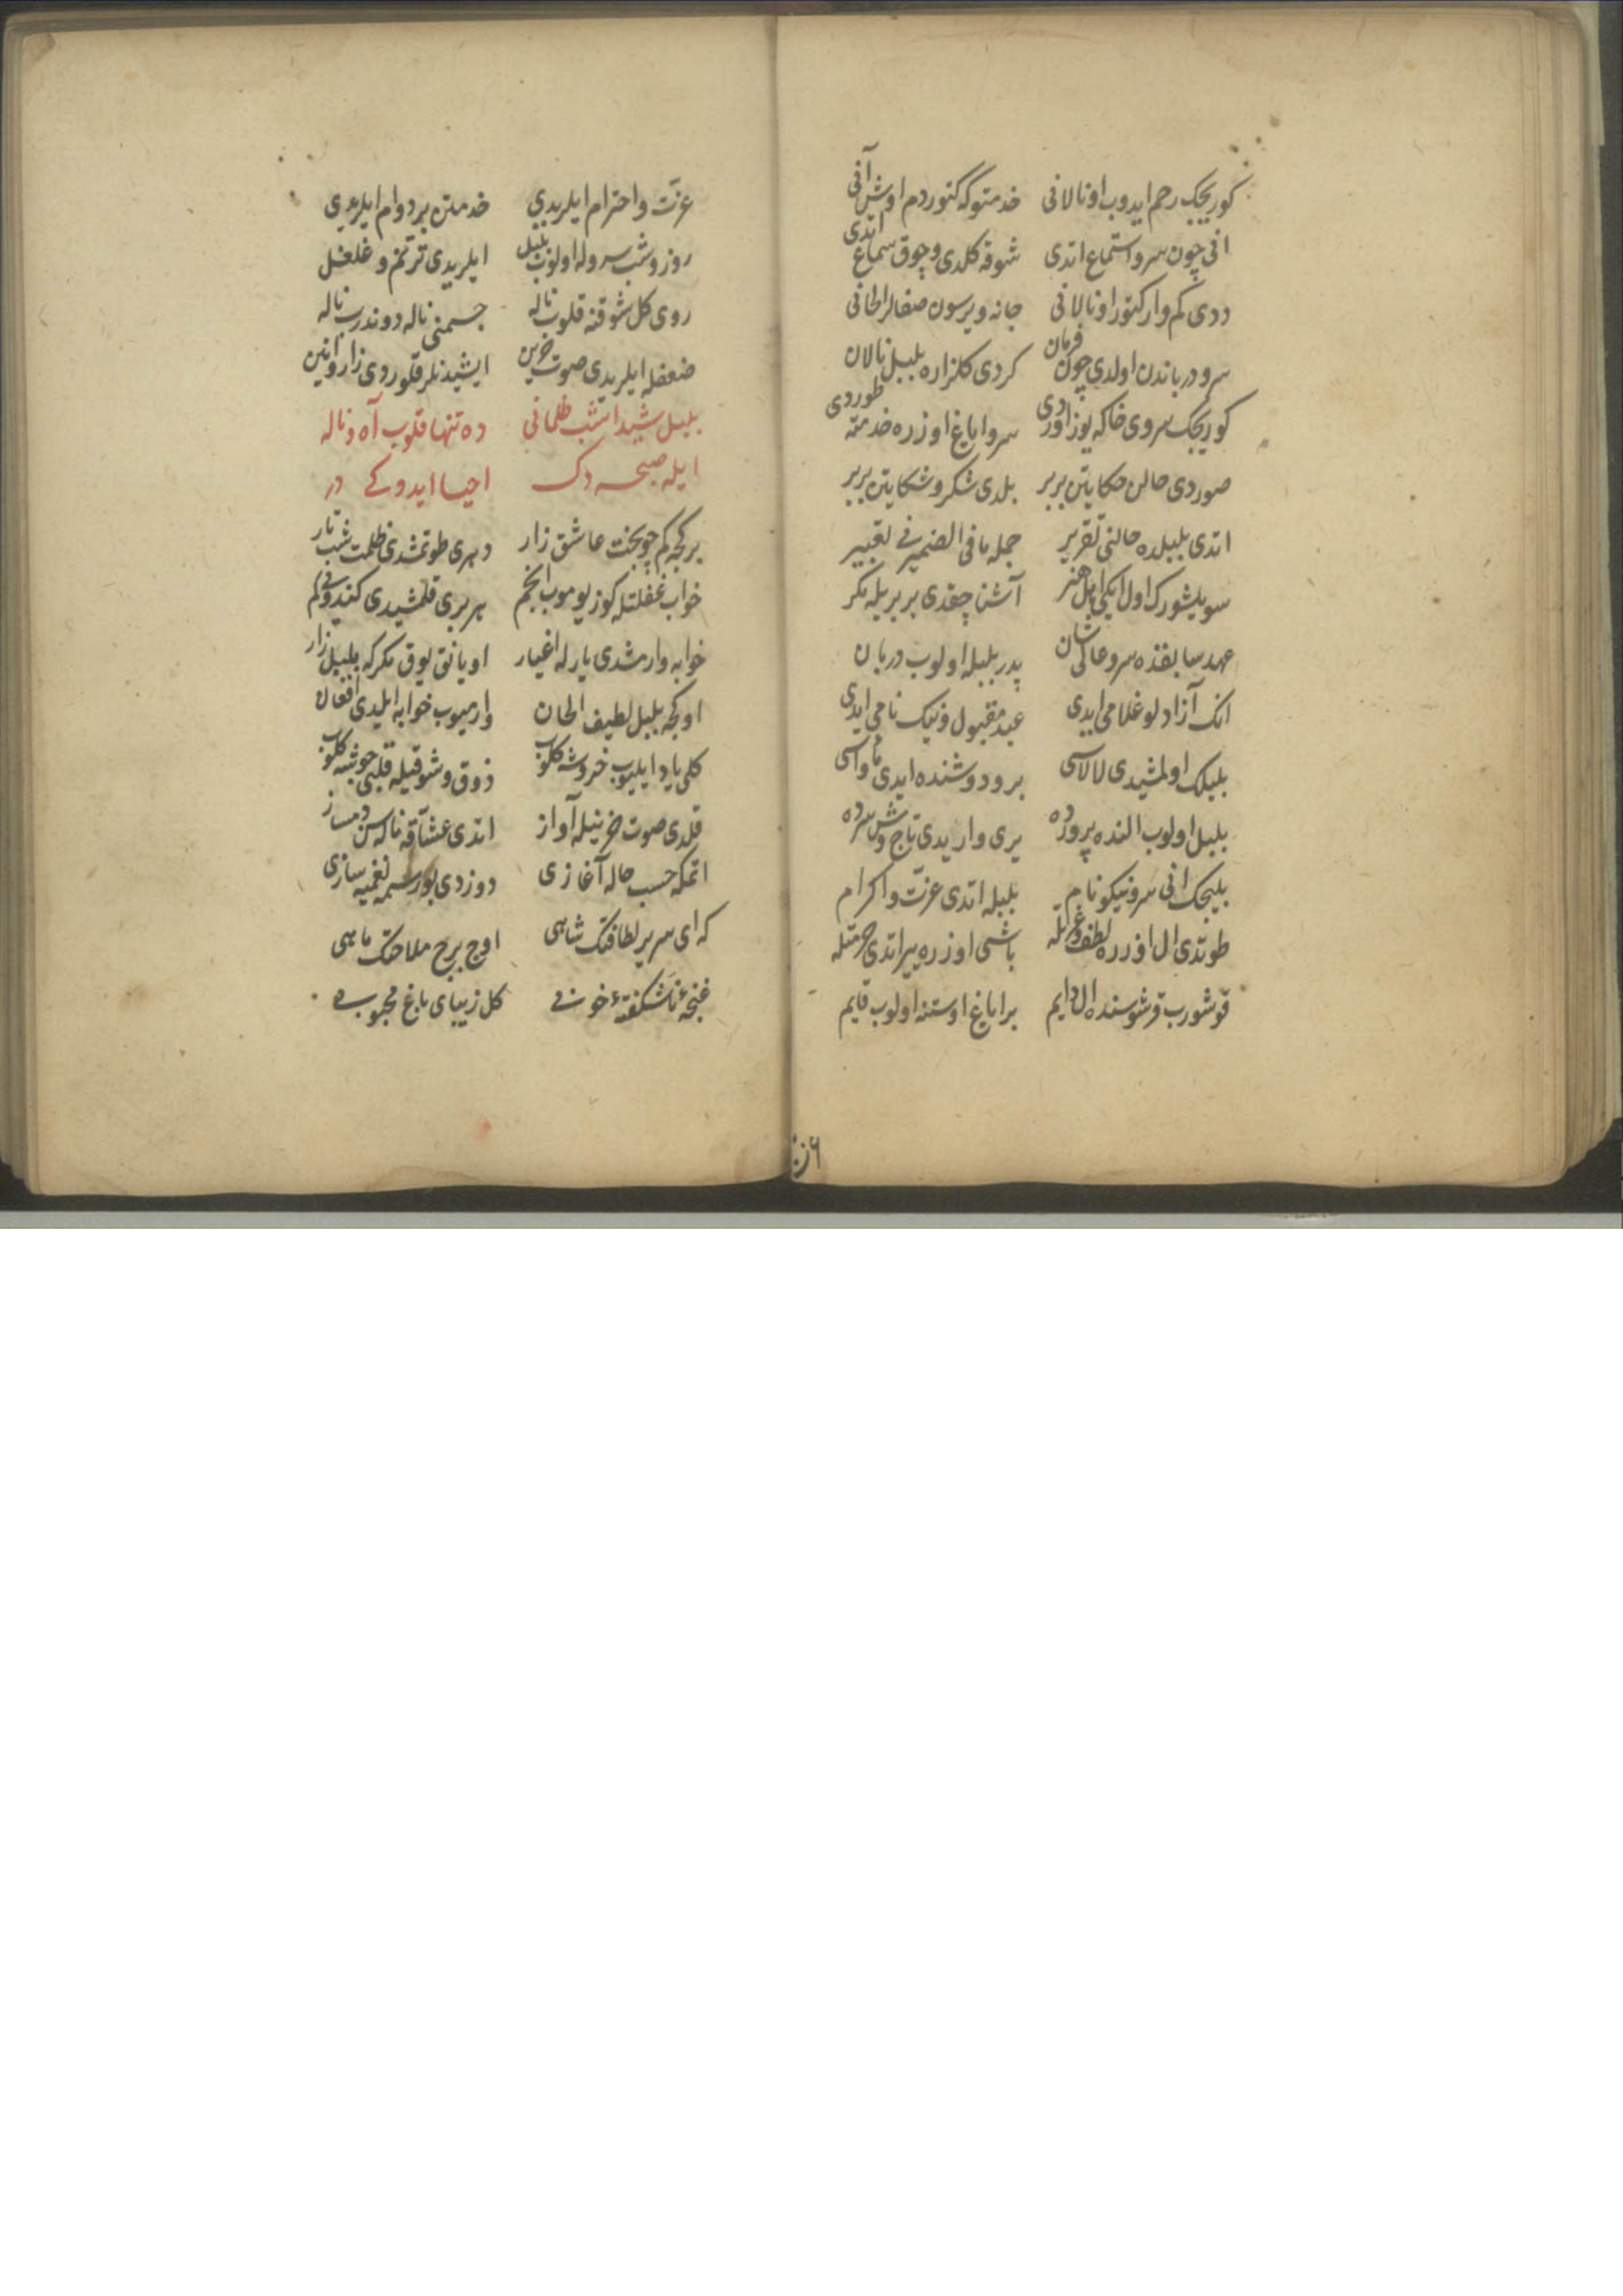 كوريجك رحم ايدوب اونالانی خدمتوكه كتوردم اوش آنی
انی چون سرو استماع اتدی شوقه كلدی و چوق سماع اتدی
ددی كم وار كتور اونالانی جانه ويرسون صفالر الحانی
سرو درباندن اولدی چون فرمان كردی كلزاره بلبل نالان
كوريجك سروی خاكه يوز اوردی سرو اياغ اوزره خدمته طوردی
صوردی حالن حكايتن بربر بلدی شكر و شكايتن بربر
اتدی بلبلده حالنی تقرير جمله ما فی الضميرنی تعبير
سويلشورك اول ايكی اهل هنر آشنا چقدی بربريله مكر
عهد سابقده سرو عاليشان پدر بلبله اولوب دربان
انك آزادلو غلامی ايدی عبد مقبول و نيك نامی ايدی
بلبلك اولمشيدی لالاسی بر و دوشنده ايدی مأواسی
بلبل اولوب النده پرورده يری واريدی تاج وش سرده
بليجك انی سرو نيكونام بلبله اتدی عزت و اكرام
طوتدی ال اوزره لطف باشی اوزره ير اتدی حرمتله
قوشورب قرشوسنده ال دايم بر اياغ اوستنه اولوب قايم
عزت و احترام ايلريدی خدمتن بر دوام ايلريدی
روز و شب سروله اولوب بلبل ايلريدی ترنم و غلغل
روی كل شوقنه قلوب ناله جسمنی ناله دوندرب ناله
ضعفله ايلريدی صوت حزين ايشيدنلر قلوردی زار و انين
بلبل شيدا شب ظلمانی ده تنها قلوب آه و ناله
ايله صبحه دك احيا ايدوكی در
بر كجه كم چو بخت عاشق زار دهری طوتمشدی ظلمت شب تار
خواب غفلتله كوز يوموب انجم هر بری قلمشيدی كندونی كم
خوابه وارمشدی يارله اغيار اويانق يوق مكركه بلبل زار
او كجه بلبل لطيف الحان وارميوب خوابه ايلدی افغان
كلی ياد ايليوب خروشه كلوب ذوق و شوقيله قلبی جوشه كلوب
قلدی صوت حزينيله آواز اتدی عشاقه ناله سن دمساز
اتمكه حسب حاله آغازی دوزدی بو رسمه نغمه سازی
كه ای سرير لطافتك شاهی اوج برج ملاحتك ماهی
غنچهٔ ناشكفتهٔ خوبی كل زيبای باغ محبوبی